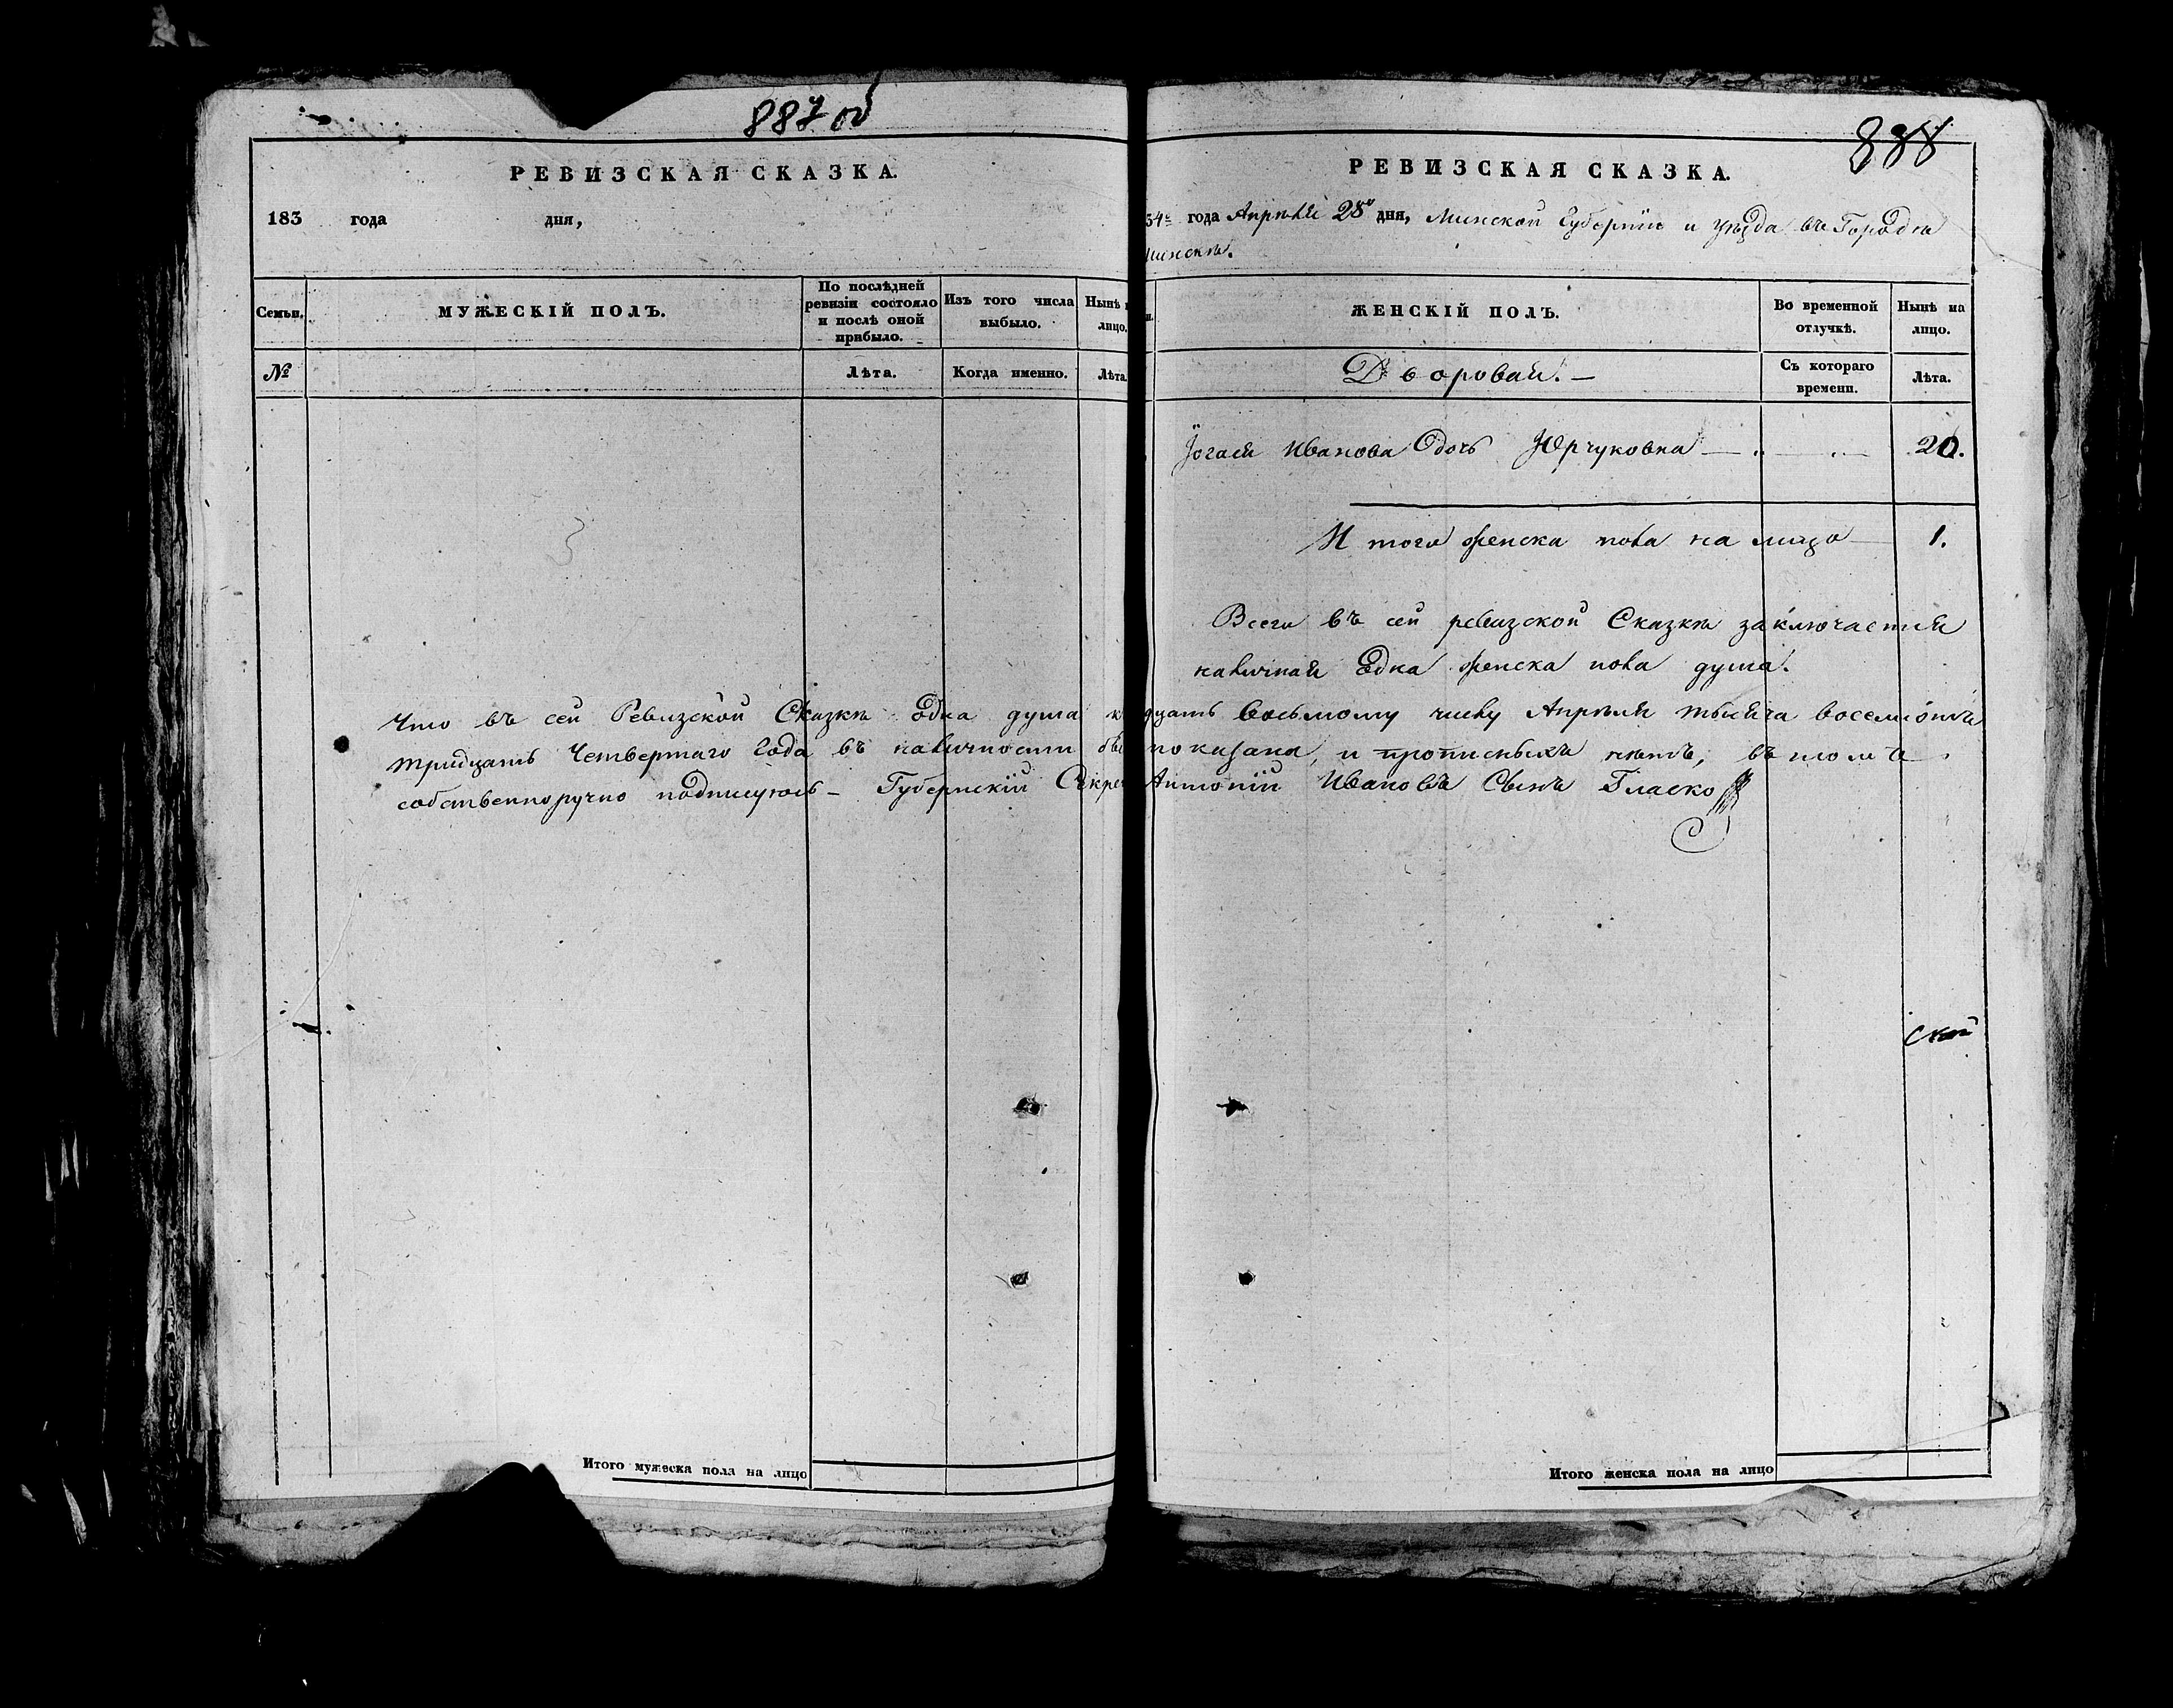 887 об
РЕВИЗСКАЯ СКАЗКА.
183 года дня,
Семьи.
МУЖЕСКІЙ ПОЛЪ.
По послѣдней
ревизіи состояло
и послѣ оной
прибыло.
Изъ того числа
выбыло.
Нынѣ
лицо.
№
Лѣта.
Когда именно.
Лѣта.
Что въ сей Ревизской Сказкѣ одна душа к
тридцать Четвертаго Года въ наличности
собственноручно подписуюсь – Губернскій Секре
Итого мужеска пола на лицо
888
РЕВИЗСКАЯ СКАЗКА.
34г года Апрѣля 28го дня, Минской Губерніи и уѣзда въ Городѣ
Минскѣ.
ЖЕНСКІЙ ПОЛЪ.
Во временной
отлучкѣ.
Нынѣ на
лицо.
Дворовая. –
Съ котораго
времени.
Лѣта.
Иванова Дочь Юрчуковна — 20.
Итого женска пола на лицо — 1.
Всего въ сей ревизской Сказкѣ заключается
наличная Една женска пола душа.
дцать восьмому числу Апрѣля тысяча восемсотъ
показана, и прописныхъ нѣтъ, въ томъ
Антоній Ивановъ Сынъ Гласко
ской
Итого женска пола на лицо